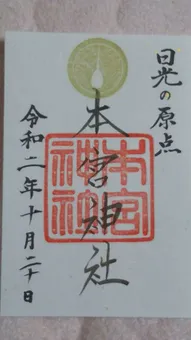 日光の原点
本宮神社
本宮神社
令和二年十月二十日